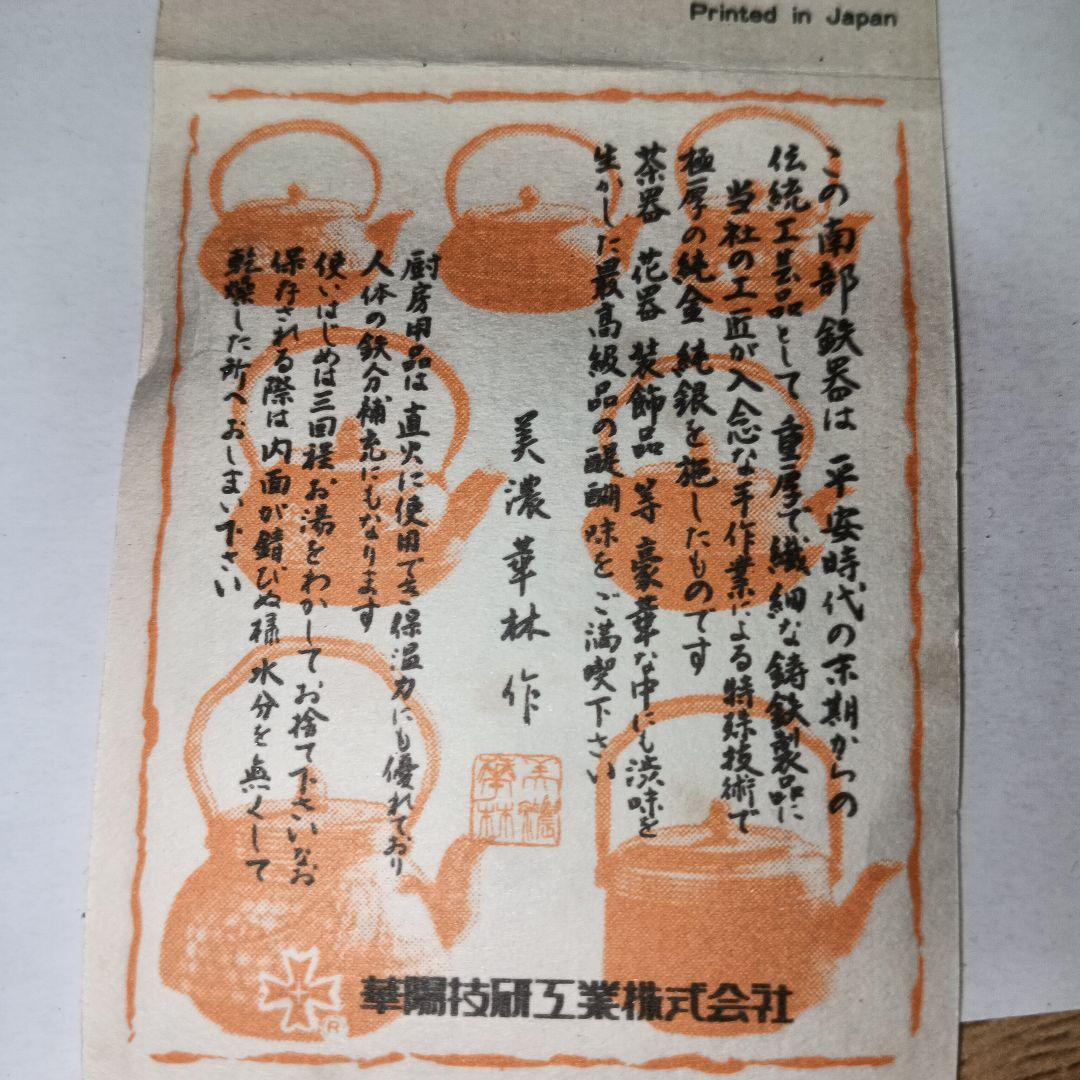 Printed in Japan
この南部鉄器は 平安時代の末期からの
伝統工芸品として 重厚で繊細な鋳鉄製品に
当社の工匠が入念な手作業による特殊技術で
極厚の純金 純銀を施したものです
茶器 花器 装飾品 等 豪華な中にも渋味を
生かした最高級品の醍醐味をご満喫下さい
美濃華林作
美濃
華林
厨房用品は 直火に使用でき 保温力にも優れており
人体の鉄分補充にもなります
使いはじめは三回程お湯をわかしてお捨て下さいなお
保存される際は内面が錆びぬ様 水分を無くして
乾燥した所へおしまい下さい
華陽技研工業株式会社
R